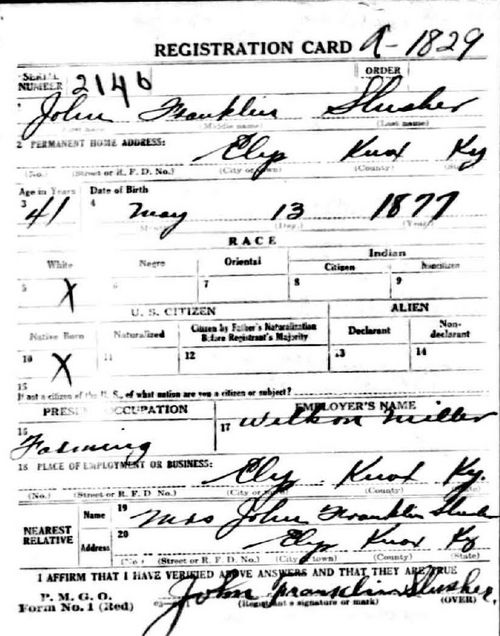 REGISTRATION CARD A-1829
SERIAL NUMBER 2146 ORDER
1 John Franklin Slusher
(Middle name) (Last name)
2 PERMANENT HOME ADDRESS:
Ely Knox Ky
(No.) (Street or R. F. D. No.) (City or town) (County)
Age in Years Date of Birth
3 41 4 May 13 1877
(Day.) (Year)
RACE
White Negro Oriental Indian
Citizen Noncitizen
5 X 6 7 8 9
U. S. CITIZEN ALIEN
Native Born Naturalized Citizen by Father's Naturalization Before Registrant's Majority Declarant Non-declarant
10 X 11 12 13 14
15
If not a citizen of the U. S., of what nation are you a citizen or subject?
PRESENT OCCUPATION EMPLOYER'S NAME
16 Farming 17 Miller
18 PLACE OF EMPLOYMENT OR BUSINESS:
Ely Knox Ky.
(No.) (Street or R. F. D No.) (City or town) (County) (State)
NEAREST RELATIVE
Name 19 Mrs John Franklin Slush
Address 20 Ely Knox Ky
(No.) (Street or R. F. D. No.) (City or town) (County) (State)
I AFFIRM THAT I HAVE VERIFIED ABOVE ANSWERS AND THAT THEY ARE TRUE
P. M. G. O.
Form No. 1 (Red) John Franklin Slusher
(Registrant's signature or mark) (OVER)